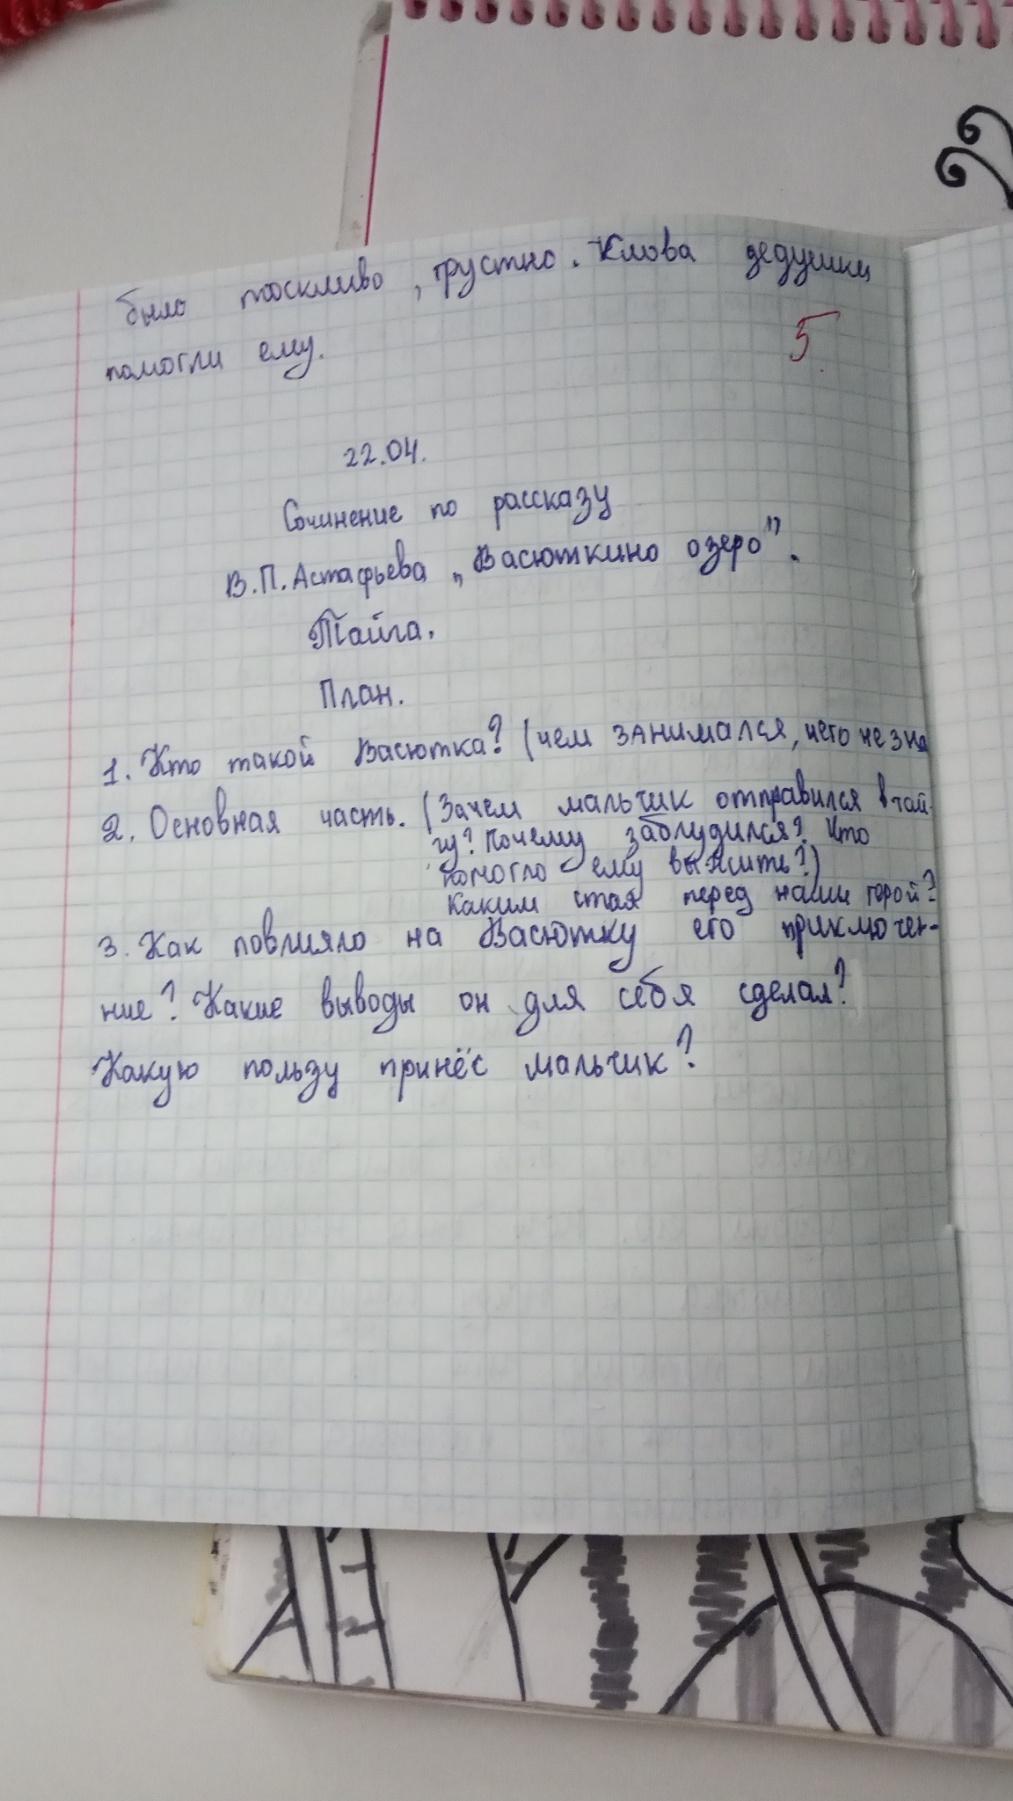 было тоскливо, грустно. Слова дедушки
помогли ему.
5
22.04.
Сочинение по рассказу
В.П.Астафьева „Васюткино озеро".
Тайга.
План.
1. Кто такой Васютка? (чем занимался, чего не зна
2. Основная часть. (Зачем мальчик отправился в тай-
гу? Почему заблудился? Что
помогло ему выжить?)
Каким стал перед нами герой?
3. Как повлияло на Васютку его приключе-
ние? Какие выводы он для себя сделал?
Какую пользу принёс мальчик?